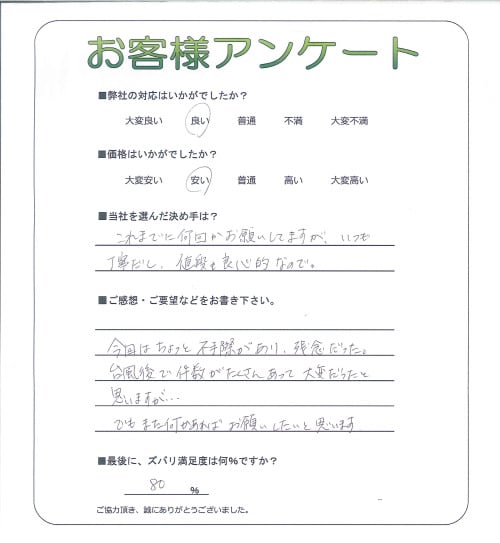 お客様アンケート
■弊社の対応はいかがでしたか?
大変良い 良い 普通 不満 大変不満
■価格はいかがでしたか?
大変安い 安い 普通 高い 大変高い
■当社を選んだ決め手は?
これまでに何回かお願いしてますが、いつも
丁寧だし、値段も良心的なので。
■ご感想・ご要望などをお書き下さい。
今回はちょっと不手際があり、残念だった。
台風後で件数がたくさんあって大変だったと
思いますが…
でもまた何かあればお願いしたいと思います
■最後に、ズバリ満足度は何%ですか?
80 %
ご協力頂き、誠にありがとうございました。